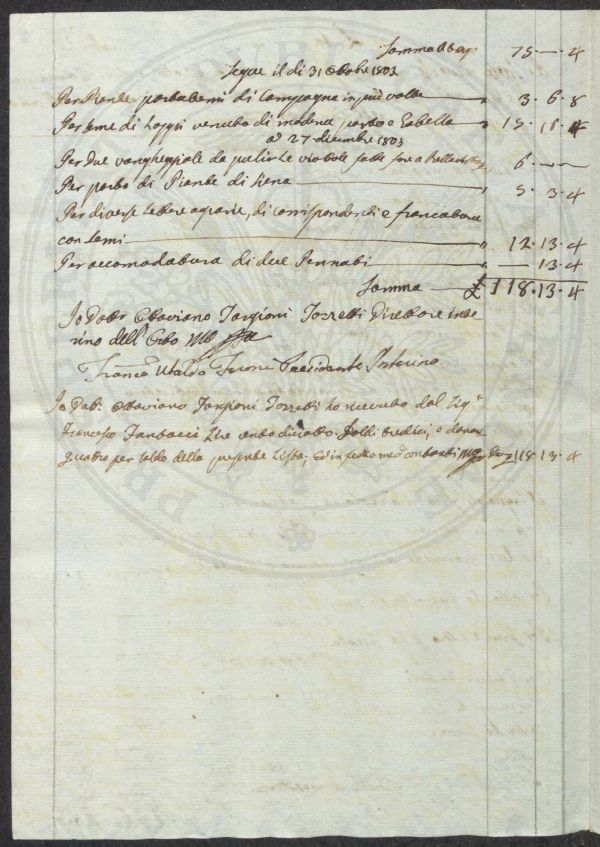 Somma Addietro 75.—.4
Segue il di 31 Ottobre 1803
Per Piante portatemi di Campagna in più volte — „ 3.6.8
Per seme di Loppi venuto di Modena porto e Gabella — „ 15.11.4
a 27 dicembre 1803
Per due vangheggiole da pulir le viottole fatte fare a „ 6.——
Per porto di Piante di Siena — „ 5.3.4
Per diverse lettere a parte, di corrispondenti e francatura
con semi — „ 12.13.4
Per accomodatura di due Pennati — „ —.13.4
Somma — £ 118.13.4
Io Dottr Ottaviano Targioni Tozzetti Direttore inte
rino dell' Orto
Franco Ubaldo Feroni Presidente Interino
Io Dott. Ottaviano Targioni Tozzetti ho ricevuto dal Sigr
Francesco Lire cento diciotto Soldi tredici, e denari
quattro per saldo della presente Lista, ed in fede 118.13.4